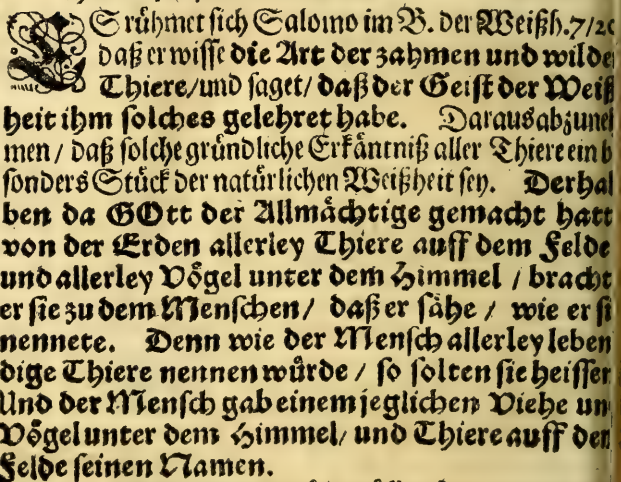 ES rühmet sich Salomo im B. der Weißh. 7/20
daß er wisse die Art der zahmen und wilde
Thiere/ und saget/ daß der Geist der Weiß
heit ihm solches gelehret habe. Daraus abzuneh
men / daß solche gründliche Erkäntniß aller Thiere ein b
sonders Stück der natürlichen Weißheit sey. Derhal
ben da GOtt der Allmächtige gemacht hatt
von der Erden allerley Thiere auff dem Felde
und allerley Vögel unter dem Himmel / bracht
er sie zu dem Menschen/ daß er sähe / wie er si
nennete. Denn wie der Mensch allerley leben
dige Thiere nennen würde / so solten sie heissen
Und der Mensch gab einem jeglichen Viehe un
Vögel unter dem Himmel/ und Thiere auff dem
Felde seinen Namen.